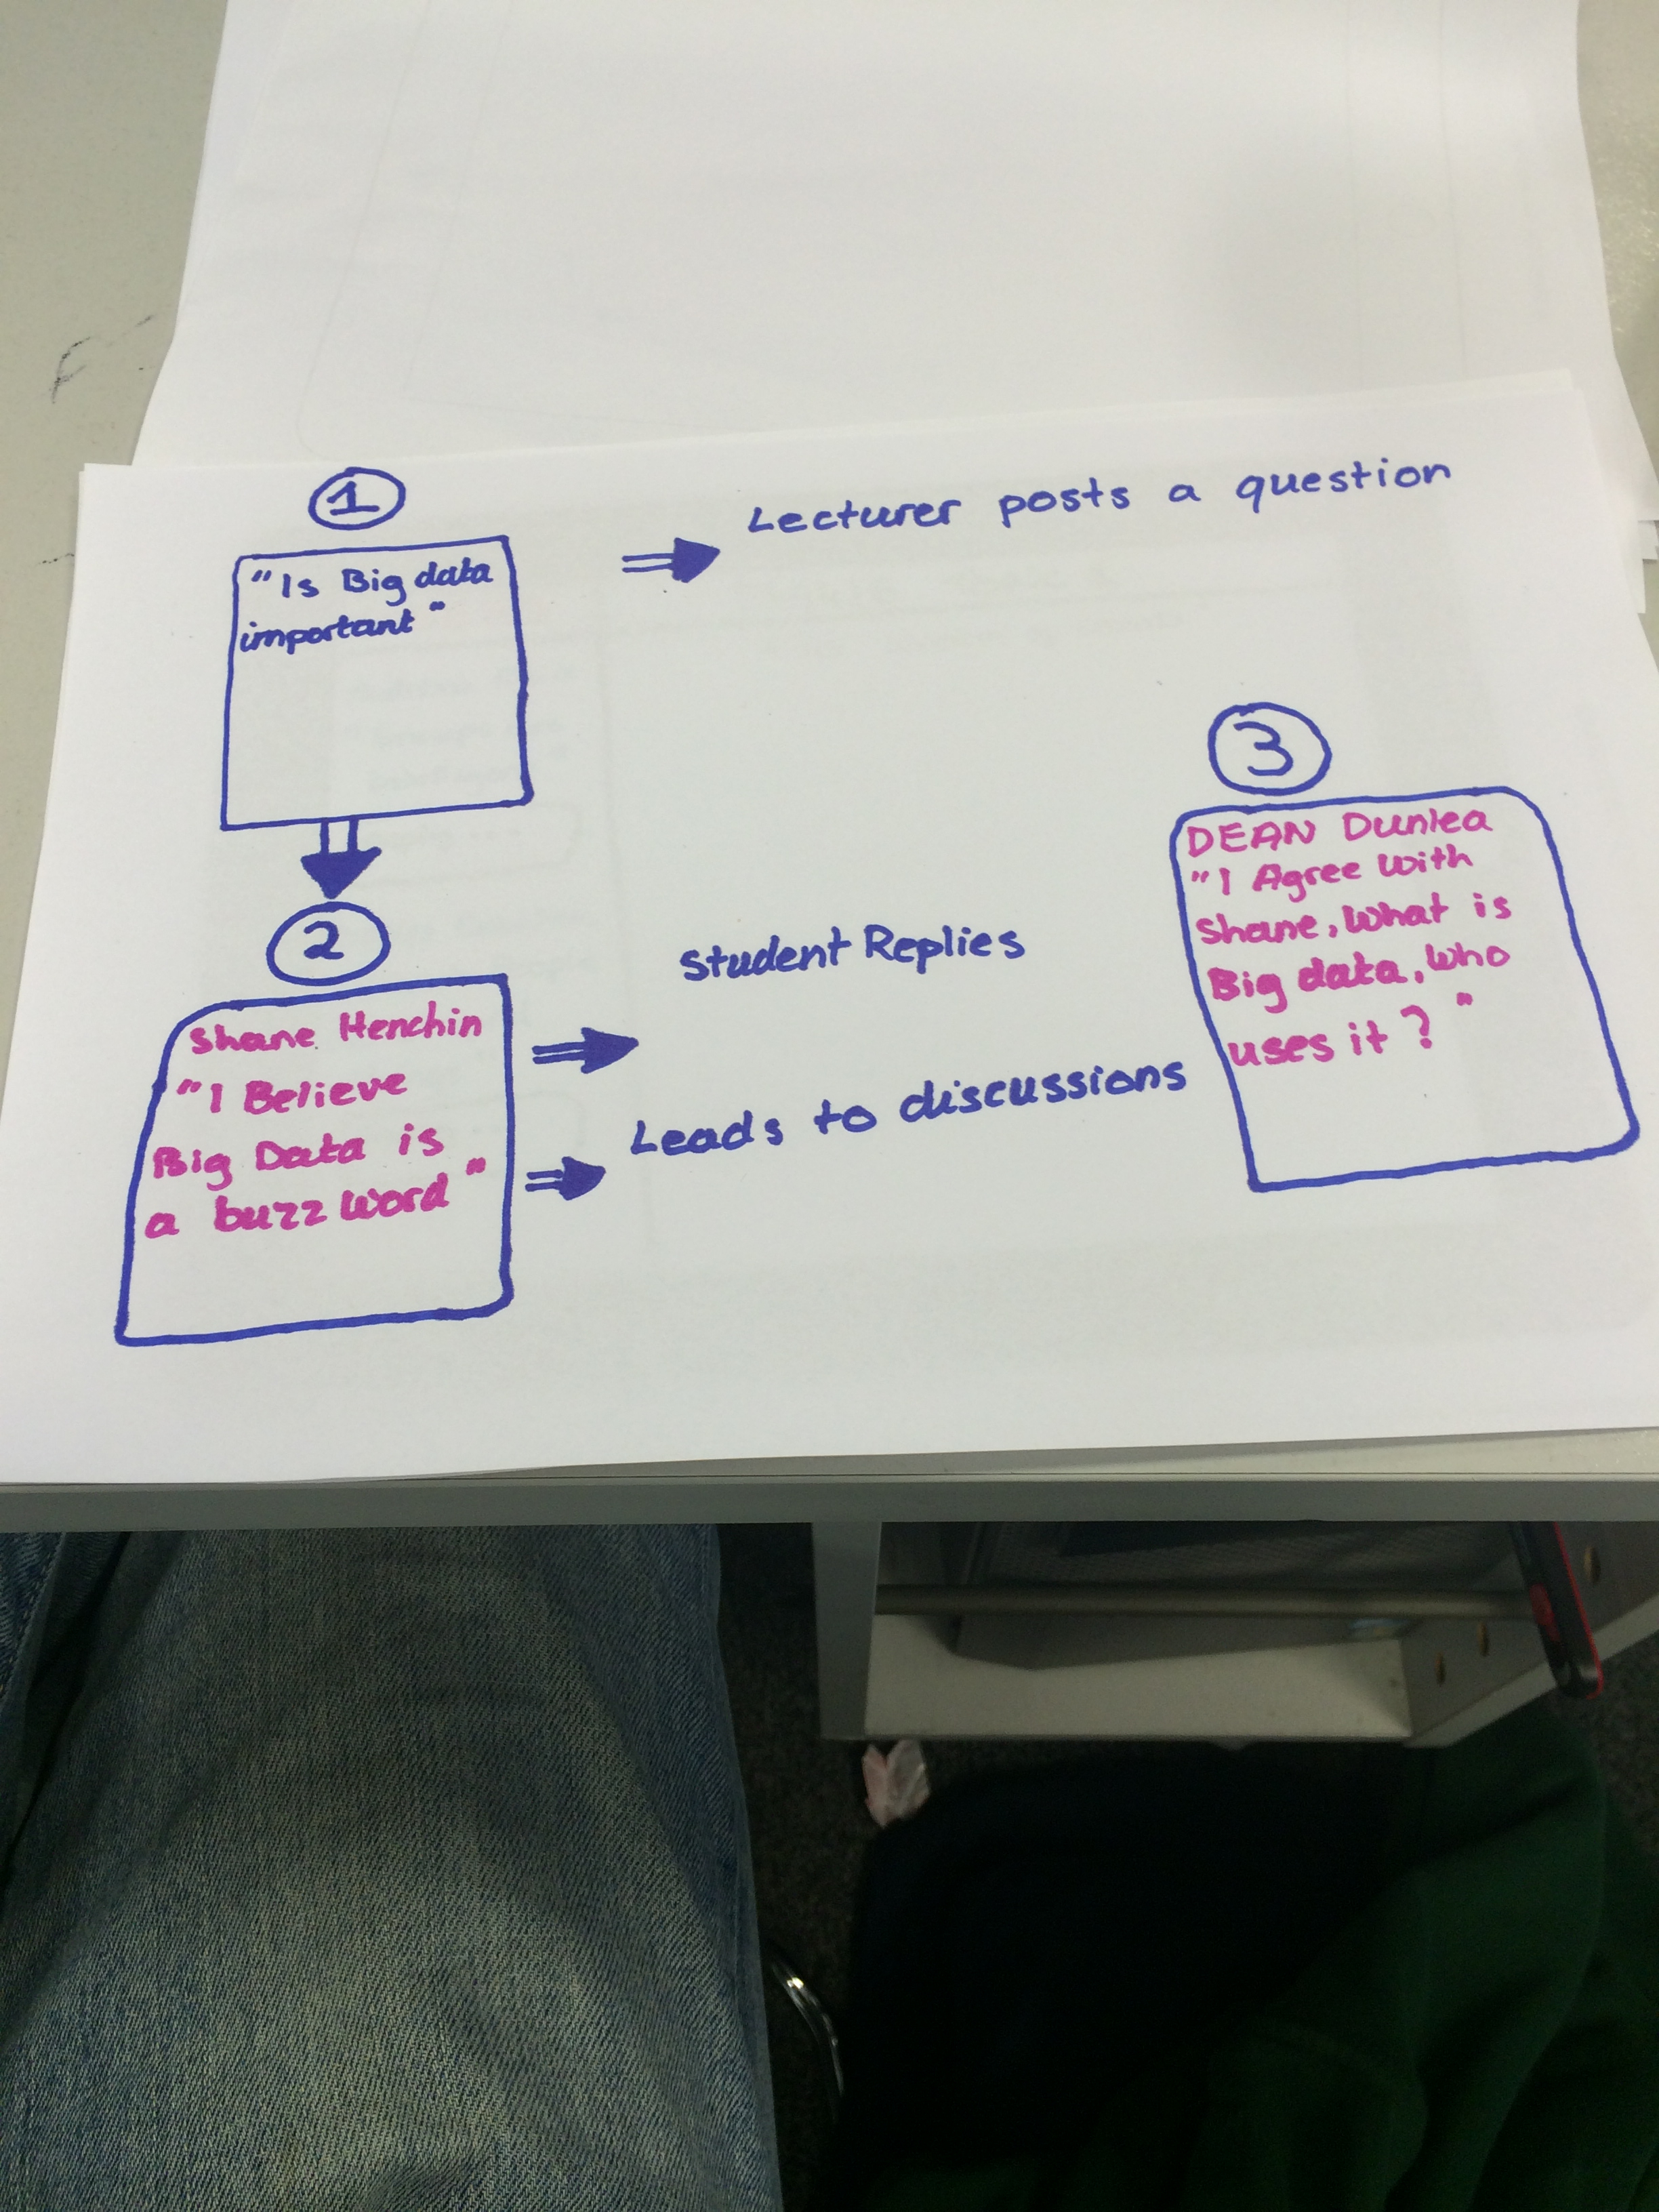 1
"Is Big data
important"
Lecturer posts a question
2
Shane Henchin
"I Believe
Big Data is
a buzz word"
Student Replies
Leads to discussions
3
DEAN Dunlea
"I Agree with
Shane, What is
Big data, Who
uses it? "